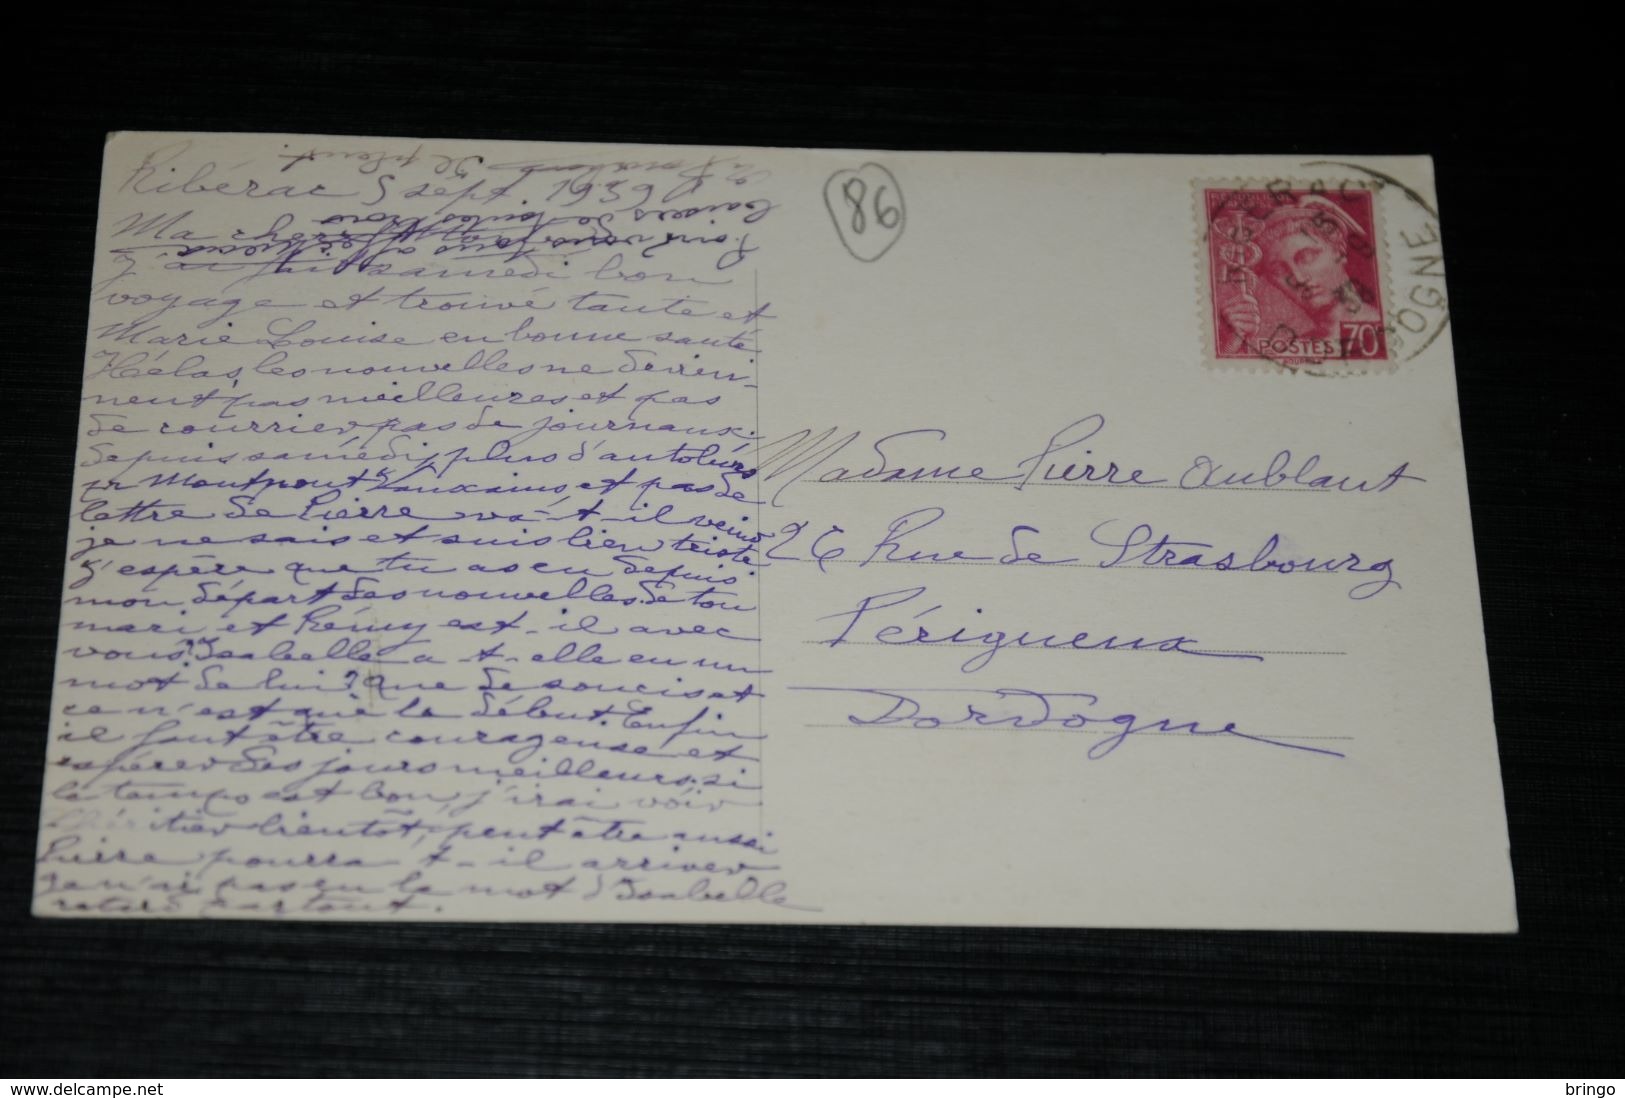 Ribérac 5 sept. 1939
Ma chère
J'ai fait samedi bon
voyage et trouvé tante et
Marie Louise en bonne santé
Hélas, les nouvelles ne devien-
nent pas meilleures et pas
de courrier pas de journaux
depuis samedi, plus d'autobus
et pas de
lettre de Pierre va-t-il venir
je ne sais et suis bien triste
j'espère que tu as eu depuis
mon départ des nouvelles de ton
mari et Rémy est-il avec
vous? Isabelle a-t-elle eu un
mot de lui? que de soucis et
ce n'est que le début. Enfin
il faut être courageuse et
espérer des jours meilleurs, si
le temps est bon, j'irai voir
bientôt, peut être aussi
Pierre pourra-t-il arriver
Je n'ai pas eu le mot d'Isabelle
retard partout.
86
POSTES
70
OGNE
Madame Pierre Aublant
26 Rue de Strasbourg
Périgueux
Dordogne
bringo